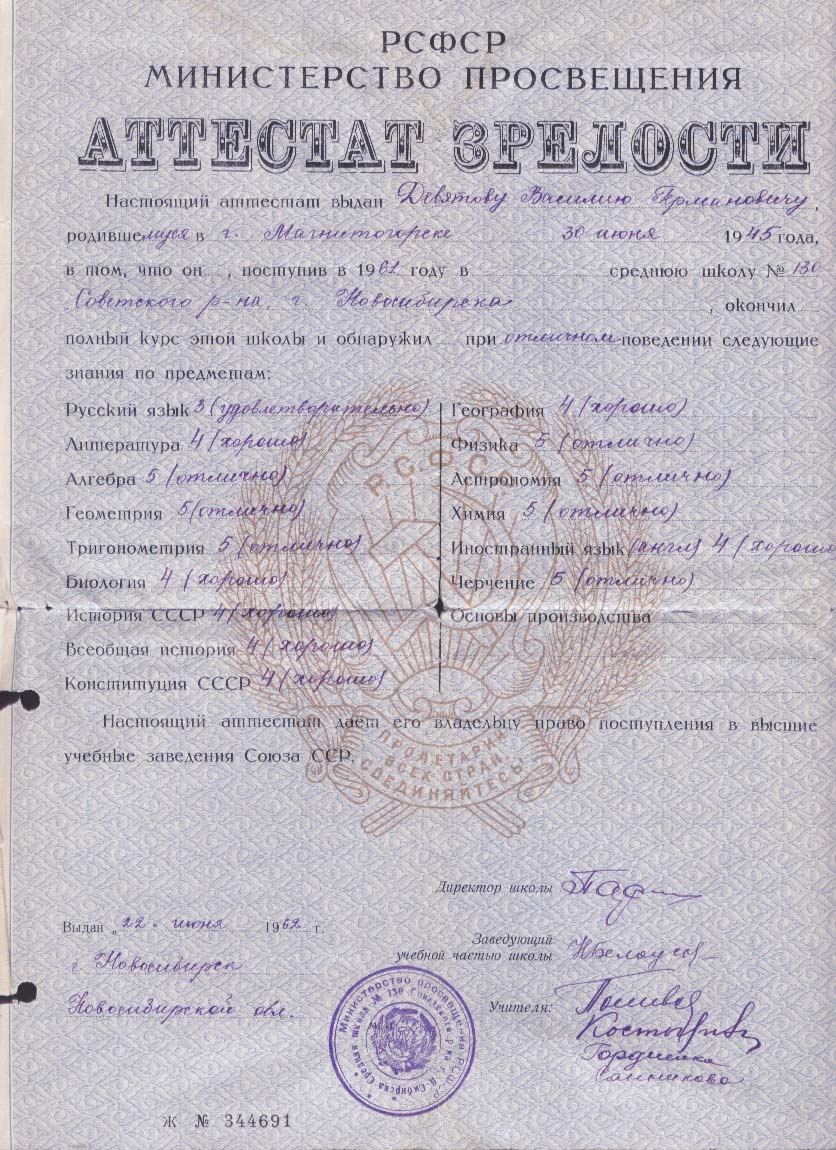 РСФСР
МИНИСТЕРСТВО ПРОСВЕЩЕНИЯ
АТТЕСТАТ ЗРЕЛОСТИ
Настоящий аттестат выдан Девятову Василию Германовичу,
родившемуся в г. Магнитогорске 30 июня 1945 года,
в том, что он, поступив в 1961 году в среднюю школу № 130
Советского р-на, г. Новосибирска, окончил
полный курс этой школы и обнаружил при отличном поведении следующие
знания по предметам:
Русский язык 3 (удовлетворительно)
Литература 4 (хорошо)
Алгебра 5 (отлично)
Геометрия 5 (отлично)
Тригонометрия 5 (отлично)
Биология 4 (хорошо)
История СССР 4 (хорошо)
Всеобщая история 4 (хорошо)
Конституция СССР 4 (хорошо)
География 4 (хорошо)
Физика 5 (отлично)
Астрономия 5 (отлично)
Химия 5 (отлично)
Иностранный язык (англ) 4 (хорошо
Черчение 5 (отлично)
Основы производства
Р.С.Ф.С.Р.
ПРОЛЕТАРИИ
ВСЕХ СТРАН,
СОЕДИНЯЙТЕСЬ!
Настоящий аттестат даёт его владельцу право поступления в высшие
учебные заведения Союза ССР.
Директор школы
Выдан „22" июня 1962 г.
г. Новосибирск
Новосибирской обл.
Заведующий
учебной частью школы НБелоусов
Учителя:
Гордиенко
Санникова
Министерство просвещения РСФСР
Средняя школа № 130 Советского р-на г. Н-Сибирска
Ж № 344691